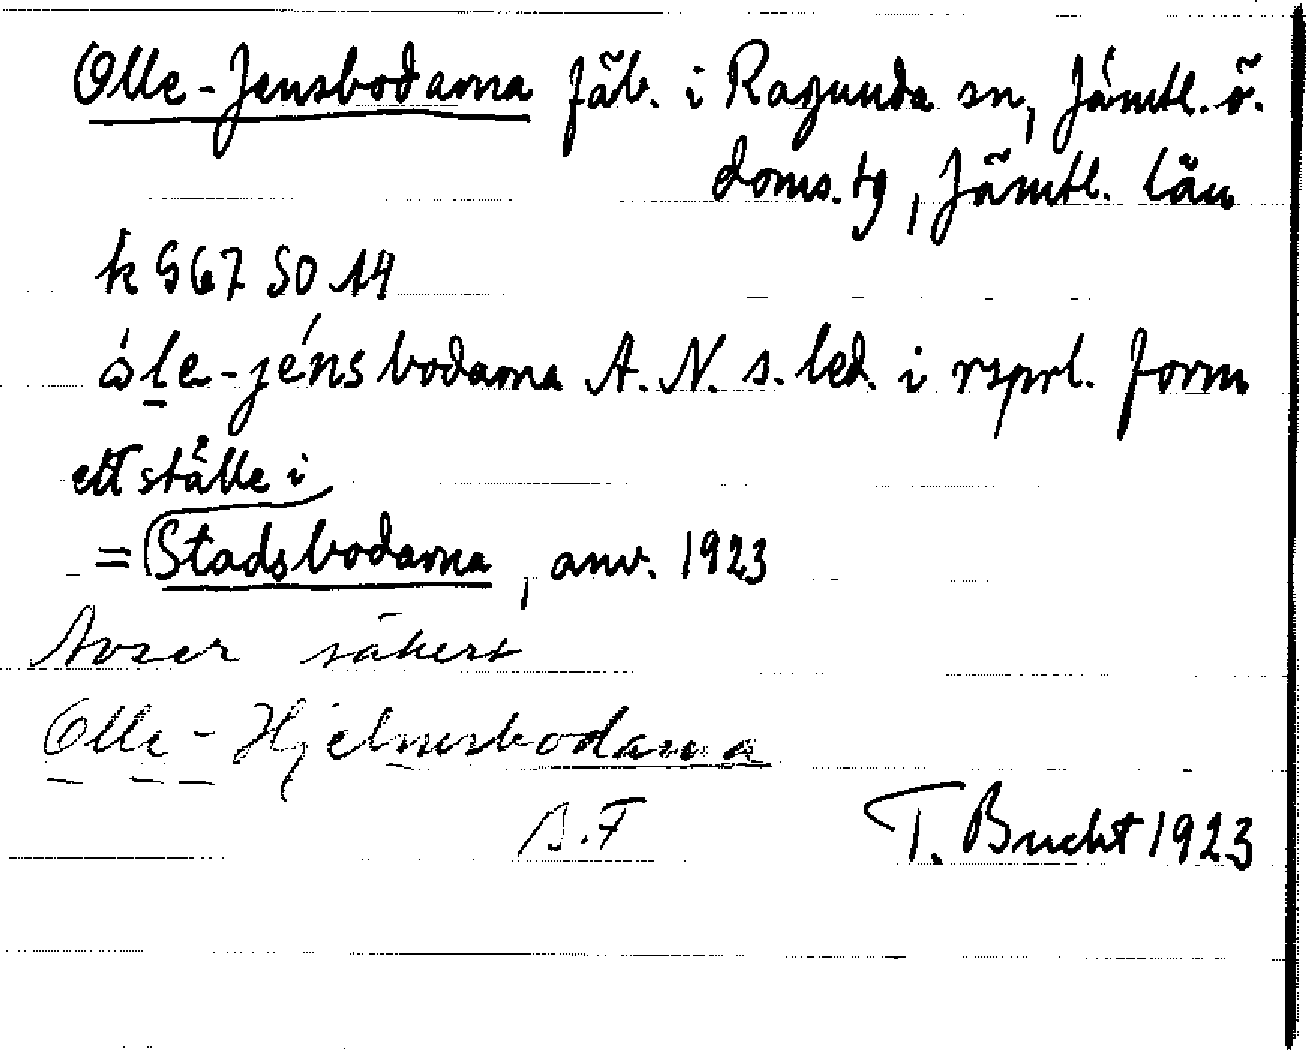 Olle-Jensbodarna fäb. i Ragunda sn, Jämtl. ö.
doms.tg, Jämtl. län
k G67 SO 14
óle-jéns bodarna A. N. s. led. i rsprl. form
ett ställe i
= Stadsbodarna, anv. 1923
Avser säkert
Olle-Hjelmersbodarna
B.F
T. Bucht 1923